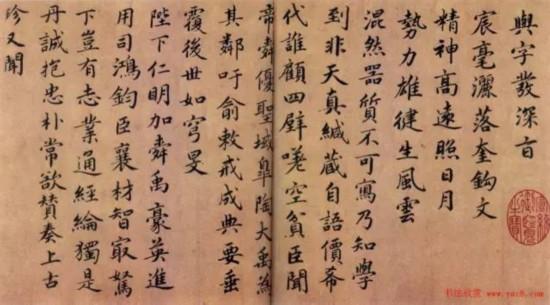 與字發深旨
宸毫灑落奎鈎文
精神高遠照日月
勢力雄健生風雲
混然器質不可寫乃知學
到非天真緘藏自語價希
代誰顧四壁嗟空貧臣聞
帝舜優聖域臯陶大禹爲
其鄰吁俞敕戒成典要垂
覆後世如穹旻
陛下仁明加舜禹豪英進
用司鴻鈞臣襄材智最駑
下豈有志業通經綸獨是
丹誠抱忠朴常欲贊奏上古
珍又聞
书法欣赏 www.yac8.com